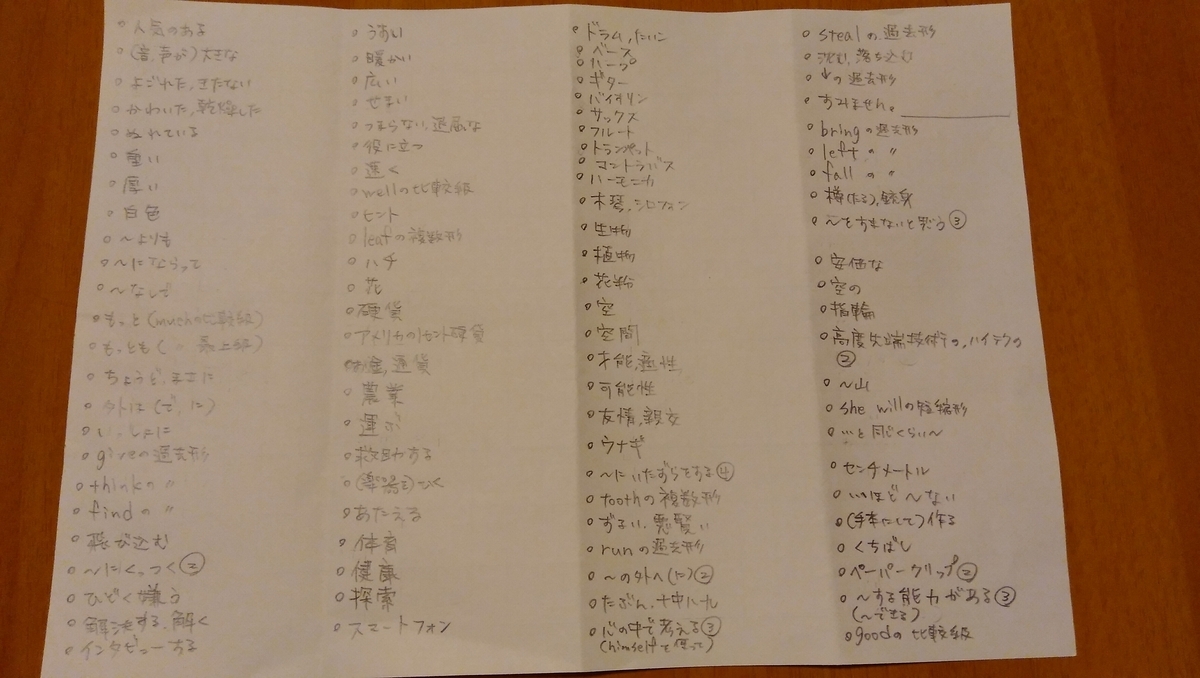 ○人気のある
○(音,声が)大きな
○よごれた,きたない
○かわいた,乾燥した
○ぬれている
○重い
○厚い
○白色
○〜よりも
○〜にならって
○〜なしで
○もっと(muchの比較級)
○もっとも( 〃 最上級)
○ちょうど,まさに
○外は(で,に)
○いっしょに
○giveの過去形
○thinkの 〃
○findの 〃
○飛び込む
○〜にくっつく②
○ひどく嫌う
○解決する,解く
○インタビューする
○うすい
○暖かい
○広い
○せまい
○つまらない,退屈な
○役に立つ
○速く
○wellの比較級
○ヒント
○leafの複数形
○ハチ
○花
○硬貨
○アメリカの1セント硬貨
○お金,通貨
○農業
○運ぶ
○救助する
○(楽器を)ひく
○あたえる
○体育
○健康
○探索
○スマートフォン
○ドラム,たいこ
○ベース
○ハープ
○ギター
○バイオリン
○サックス
○フルート
○トランペット
○コントラバス
○ハーモニカ
○木琴,シロフォン
○生物
○植物
○花粉
○空
○空間
○才能,適性
○可能性
○友情,親交
○ウナギ
○〜にいたずらをする④
○toothの複数形
○ずるい,悪賢い
○runの過去形
○〜の外へ(に)②
○たぶん,十中八九
○心の中で考える③
(himselfを使って)
○stealの過去形
○沈む,落ち込む
○↑の過去形
○すみません。
○bringの過去形
○leftの 〃
○fallの 〃
○樽(たる),銃身
○〜をすまないと思う③
○安価な
○空の
○指輪
○高度先端技術の,ハイテクの
②
○〜山
○she willの短縮形
○…と同じくらい〜
○センチメートル
○…ほど〜ない
○(手本にして)作る
○くちばし
○ペーパークリップ②
○〜する能力がある③
(〜できる)
○goodの比較級